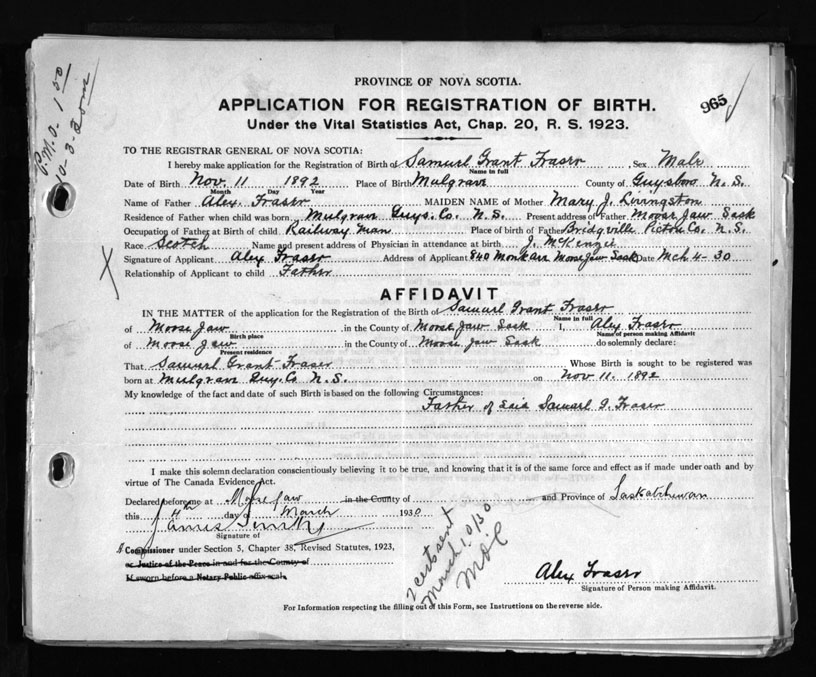 P.M.O. 1.50
10-3-30
PROVINCE OF NOVA SCOTIA.
965
APPLICATION FOR REGISTRATION OF BIRTH.
Under the Vital Statistics Act, Chap. 20, R. S. 1923.
TO THE REGISTRAR GENERAL OF NOVA SCOTIA:
I hereby make application for the Registration of Birth of Samuel Grant Fraser Sex Male
Name in full
Date of Birth Nov. 11 1892 Place of Birth Mulgrave County of Guysboro N. S.
Month Day Year
Name of Father Alex. Fraser MAIDEN NAME of Mother Mary J. Livingston
Residence of Father when child was born Mulgrave Guys. Co. N. S. Present address of Father Moose Jaw Sask
Occupation of Father at Birth of child Railway Man Place of birth of Father Bridgville Pictou Co. N. S.
Race Scotch Name and present address of Physician in attendance at birth J. McKenzie
Signature of Applicant Alex Fraser Address of Applicant 840 Moose Jaw Sask Date Mch 4-30
Relationship of Applicant to child Father
AFFIDAVIT
IN THE MATTER of the application for the Registration of the Birth of Samuel Grant Fraser
Name in full
of Moose Jaw in the County of Moose Jaw Sask I, Alex Fraser
Birth place Name of person making Affidavit
of Moose Jaw in the County of Moose Jaw Sask do solemnly declare:
Present residence
That Samuel Grant Fraser Whose Birth is sought to be registered was
born at Mulgrave Guy. Co N. S. on Nov 11. 1892
My knowledge of the fact and date of such Birth is based on the following Circumstances:
Father of said Samuel G. Fraser
I make this solemn declaration conscientiously believing it to be true, and knowing that it is of the same force and effect as if made under oath and by
virtue of The Canada Evidence Act.
Declared before me at Moose Jaw in the County of and Province of Saskatchewan
this 4th day of March 1930
James Smith
Signature of
A Commissioner under Section 5, Chapter 38, Revised Statutes, 1923,
or Justice of the Peace in and for the County of
If sworn before a Notary Public affix seal.
2 certs sent
March 10/30
Alex Fraser
Signature of Person making Affidavit.
For Information respecting the filling out of this Form, see Instructions on the reverse side.